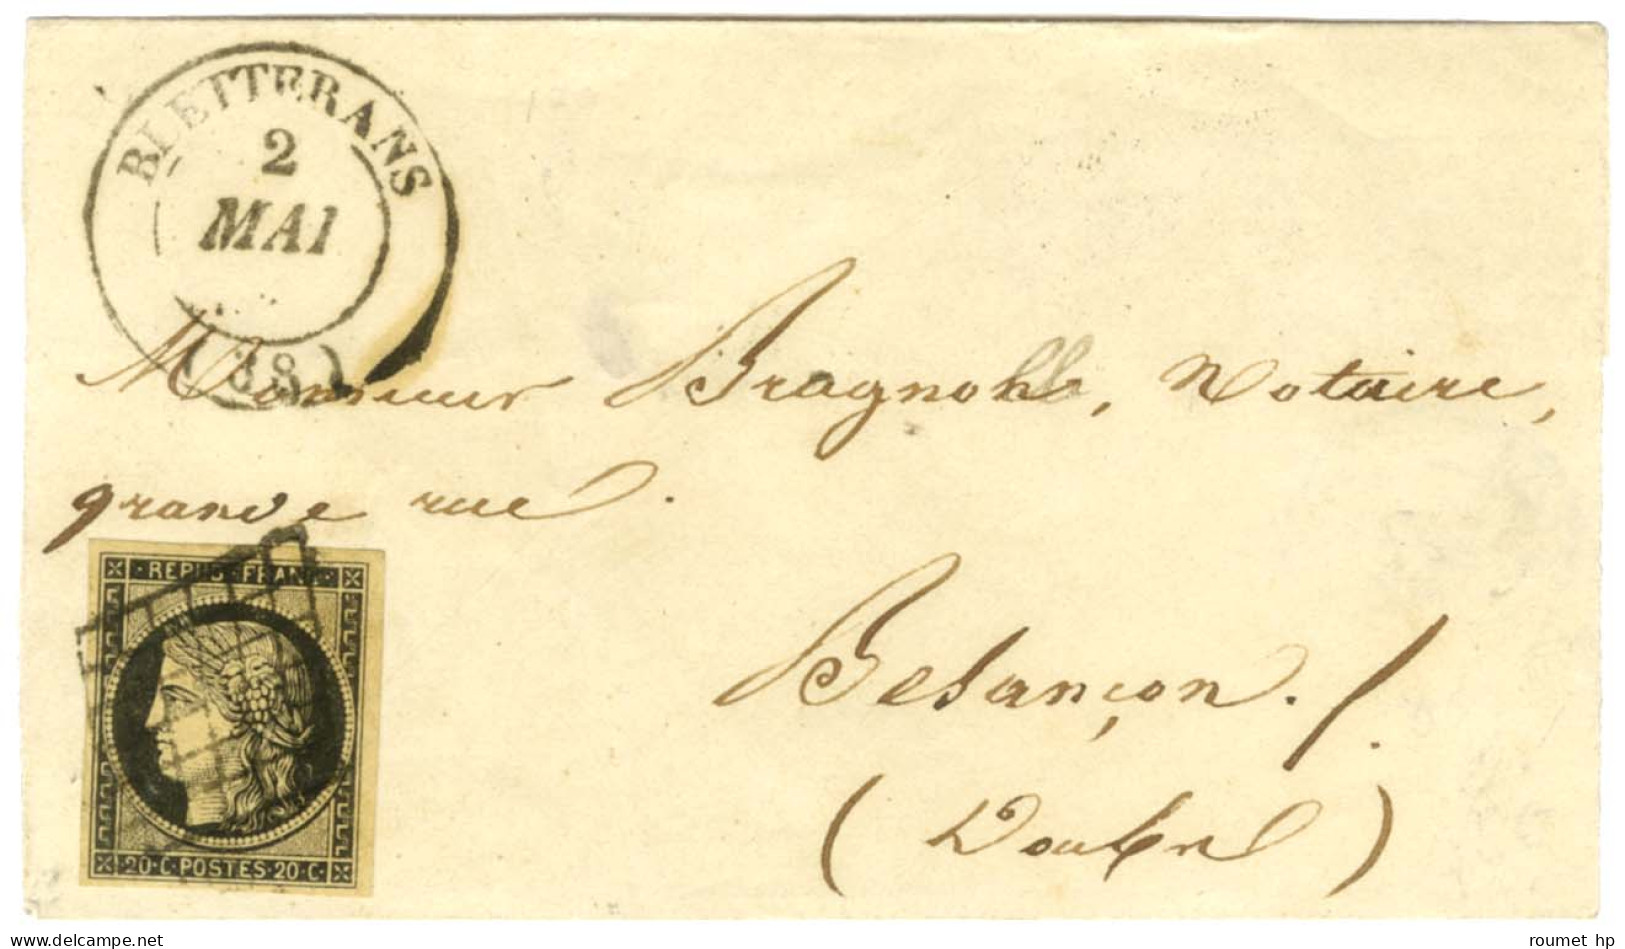 BLETTERANS
2
MAI
(38)
Monsieur Bragnoll, Notaire,
grande rue.
REPUB·FRANC
20·C·POSTES·20·C·
Besançon./.
(Doubs)
www.delcampe.net
roumet hp